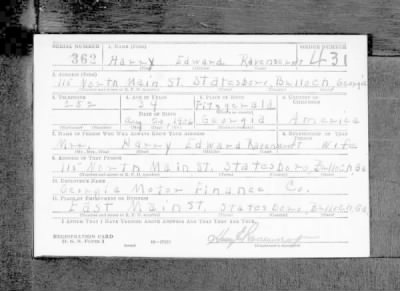 SERIAL NUMBER 1. NAME (Print) ORDER NUMBER
362 Harry Edward 431
(First) (Middle) (Last)
2. ADDRESS (Print)
115 North Main St. Statesboro, Bulloch, Georgia
3. TELEPHONE 4. AGE IN YEARS 5. PLACE OF BIRTH 6. COUNTRY OF CITIZENSHIP
252 34 Fitzgerald
DATE OF BIRTH
Georgia America
7. NAME OF PERSON WHO WILL ALWAYS KNOW YOUR ADDRESS 8. RELATIONSHIP OF THAT PERSON
Mrs. Harry Edward Wife
9. ADDRESS OF THAT PERSON
115 North Main St. Statesboro, Bulloch Ga
10. EMPLOYER'S NAME
Georgia Motor Finance Co.
11. PLACE OF EMPLOYMENT OR BUSINESS
East Main St. Statesboro, Bulloch, Ga.
I AFFIRM THAT I HAVE VERIFIED ABOVE ANSWERS AND THAT THEY ARE TRUE.
REGISTRATION CARD
D. S. S. FORM 1